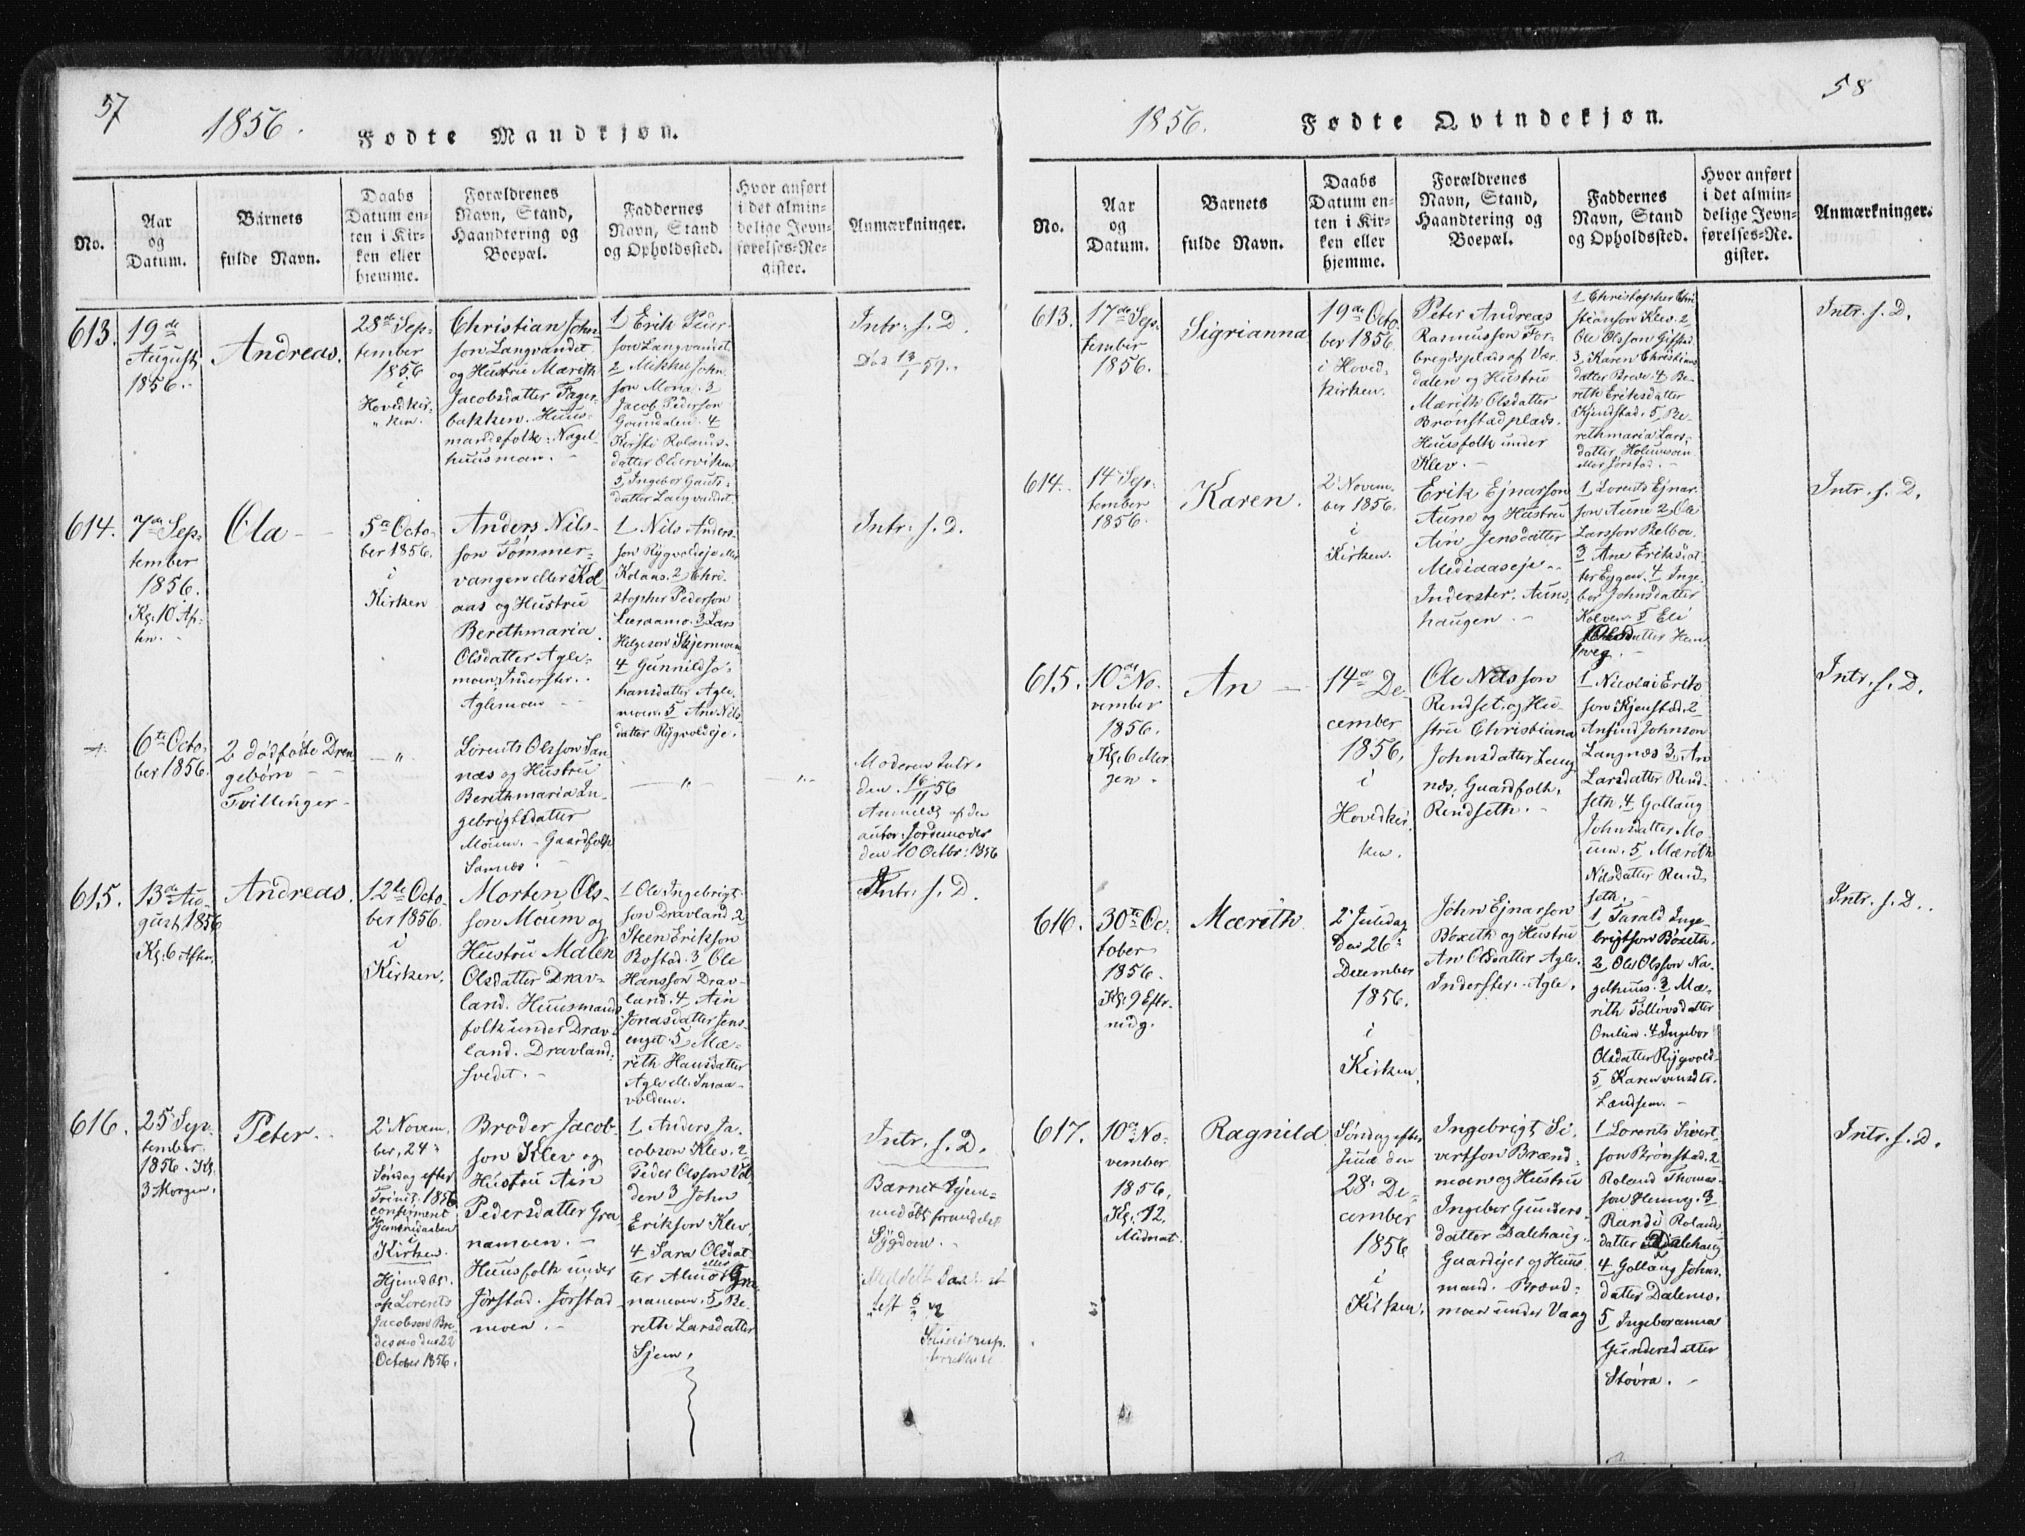 57
1856.
Fødte Mandkjøn.
No.
Aar
og
Datum.
Barnets
fulde Navn.
Daabs
Datum en-
ten i Kir-
ken eller
hjemme.
Forældrenes
Navn, Stand,
Haandtering og
Boepæl.
Faddernes
Navn, Stand
og Opholdssted.
Hvor anført
i det almin-
delige Jevn-
førelses-Re-
gister.
Anmærkninger.
613.
19de
August
1856.
Andreas.
28de Sep-
tember
1856
i
Hovedkir-
ken.
Christian John-
son Langvandet
og Hustru Mærith
Jacobsdatter Fager-
bakken. Huus-
mandsfolk: Nagel-
huusmoen.
1 Erik Peter-
son Langvandet
2 Mikkel John-
son Mona. 3
Jacob Pederson
Grøndalen. 4
Kirsti Rolands-
datter Oldervikem
5 Ingebor Gauts-
datter Langvandet.
Intr. s. D.
Død 13/1 59.
614.
7de Sep-
tember
1856.
Kl. 10 Af-
ten.
Ola
5te Octo-
ber 1856.
i
Kirken
Anders Nils-
son Tømmer-
vangen eller Kol-
aas og Hustru
Berethmaria
Olsdatter Agle-
moen, Inderster.
Aglemoen
1 Nils Anders-
son Rygvoldeje eller
Kolaas. 2 Chri-
stopher Pederson
Luraamo. 3 Lars
Helgeson Skjermoen
4 Gunnild Jo-
hansdatter Agle-
moen. 5 Ane Nils-
datter Rygvoldeje.
Intr. s. D.
6te Octo-
ber 1856.
2 dødfødte Dren-
gebørn
Tvillinger
"
Lorents Olsson San-
næs og Hustru
Berethmaria In-
gebrigtsdatter
Moum. Gaardfolk
Sannæs.
"
"
Moderen Intr.
den 16/11 56
Anmeldt af den
autor. Jordemoder
den 10 Octbr. 1856
615.
13de Au-
gust, 1856
Kl. 6 Aften.
Andreas.
12te Octo-
ber 1856.
i
Kirken.
Morten Ols-
son Moum og
Hustru Malen
Olsdatter Drav-
land. Huusmands
folk under Drav-
land. Dravland-
svedet.
1 Ole Ingebrigt-
son Dravland. 2
Steen Erikson
Bostad. 3 Ole
Hansson Drav-
land. 4 Ain
Jonasdatter Jens-
enget. 5 Mæ-
rith Hansdatter
Agle ell. Smaa-
volden.
Intr. s. D.
616.
25 Sep-
tember
1856. Kl.
3 Morgen.
Peter.
2 Novem-
ber, 24
Søndag efter
Trinit. 1856
confirmeret
Hjemmedaaben
i
Kirken.
Hjemdøbt
af Lorents
Jacobson Bre-
desmo den 22
October 1856.
Broder Jacob-
son Klev og
Hustru Ain
Pedersdatter Gra-
namoen.
Huusfolk under
Jørstad. Jørstad-
moen.
1 Anders Ja-
cobson Klev. 2
Peder Olsson Vol-
den 3 John
Erikson Klev
4 Sara Olsdat-
ter Almo eller Gra-
namoen. 5 Be-
reth Larsdatter
Gjem.
Intr. s. D.
Barnet hjem-
medøbt formedelst
Sygdom.
58
1856.
Fødte Qvindekjøn.
No.
Aar
og
Datum.
Barnets
fulde Navn.
Daabs
Datum en-
ten i Kir-
ken eller
hjemme.
Forældrenes
Navn, Stand,
Haandtering og
Boepæl.
Faddernes
Navn, Stand
og Opholdsted.
Hvor anført
i det almin-
delige Jevn-
førelses-Re-
gister.
Anmærkninger.
613.
17de Sep-
tember
1856.
Sigrianna
19de Octo-
ber 1856.
i Hoved-
kirken.
Peter Andreas
Rasmusson For-
bregdsplads af Vær-
dalen og Hustru
Mærith Olsdatter
Brønstadplads.
Huusfolk under
Klev.
1 Christopher Chri-
stianson Klev. 2
Ole Olsson Gifstad
3 Karen Christians-
datter Brede. 4 Be-
reth Eriksdatter
Kjenstad. 5 Be-
rethmaria Lars-
datter Holmmoen
eller Jørstad.
Intr. s. D.
614.
14 Sep-
tember
1856.
Karen.
2 Novem-
ber 1856.
i
Kirken.
Erik Ejnarson
Aune og Hustru
Ain Jensdatter
Mediaaseje.
Inderster. Aune-
haugen.
1 Lorents Ejnar-
son Aune 2 Ole
Larsson Belboe.
3 Ane Eriksdat-
ter Eggen. 4 Inge-
bor Johnsdatter
Kolven. 5 Eli
Olsdatter Hem-
veg.
Intr. s. D.
615.
10de No-
vember
1856.
Kl. 6 Mor-
gen.
An
14de De-
cember
1856.
i
Hovedkir-
ken.
Ole Nilsson
Rendset. og Hu-
stru Christiana
Johnsdatter Lang-
næs, Gaardfolk.
Rendseth.
1 Nicolai Erik-
son Kjenstad. 2
Anfind Johnson
Langnæs 3. An
Larsdatter Rend-
seth. 4 Gollaug
Johnsdatter Mo-
um. 5 Mærith
Nilsdatter Rend-
seth.
Intr. s. D.
616.
30te Oc-
tober
1856.
Kl. 9 Eftr-
midg.
Mærith.
2 Juledag
den 26
December
1856.
i
Kirken.
John Ejnarson
Bøxeth og Hustru
An Olsdatter Agle.
Inderster. Agle.
1 Tarald Inge-
brigtson Bøxeth.
2 Ole Olsson Na-
gelhuus. 3 Mæ-
rith Tollovsdatter
Omlien. 4 Ingebor
Olsdatter Rygvold
5 Karen
Landsem.
Intr. s. D.
617.
10de No-
vember
1856.
Kl. 12.
Midnat.
Ragnild
Søndag efter
Juul den
28 De-
cember
1856
i
Kirken.
Ingebrigt Si-
vertson Brænd-
moen og Hustru
Ingebor Gunders-
datter Dalehaug.
Gaardejet og Huus-
mand. Brænd-
moen under Vaag
1 Lorents Sivert-
son Brønstad. 2
Roland Thomas-
son Hemveg. 3
Randi Rolands-
datter Dalehaug
4 Gollaug Johns-
datter Dalemo.
5 Ingeboranna
Gundersdatter
Støvra.
Intr. s. D.